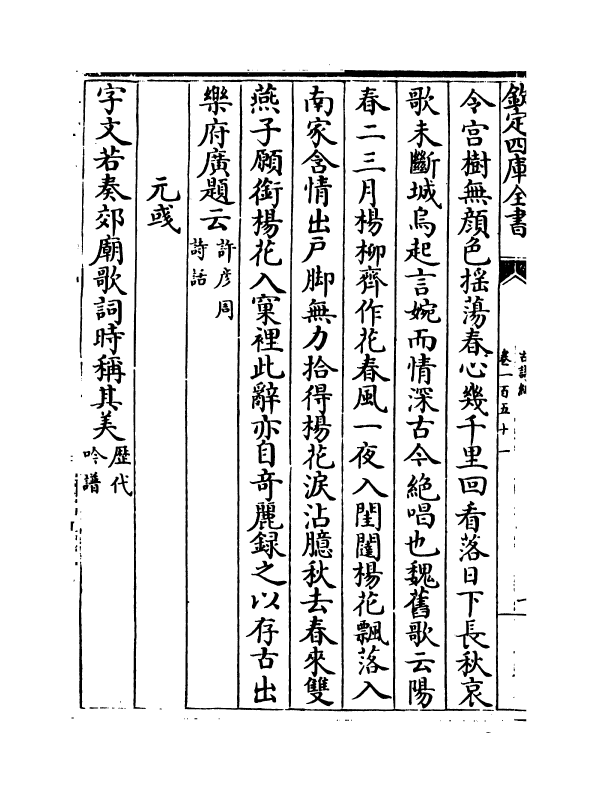 欽定四庫全書
卷一百五十一
令宫樹無顔色揺蕩春心幾千里回看落日下長秋哀
歌未斷城烏起言婉而情深古今絶唱也魏舊歌云陽
春二三月楊柳齊作花春風一夜入閨闥楊花飄落入
南家含情出戸脚無力拾得楊花淚沾臆秋去春來雙
燕子願銜楊花入窠裡此辭亦自竒麗録之以存古出
樂府廣題云許彦周
詩話
元彧
字文若奏郊廟歌詞時稱其美歴代
吟譜